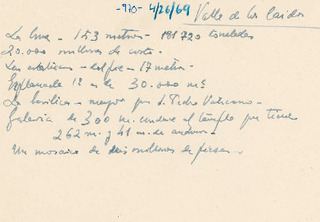 -970- 4/26/69 Valle de los Caidos
La Cruz - 153 metros - 181720 toneladas
20.000 millones de costo.
Las estatuas - del pie - 17 metros
Explanada 1ª es de 30.000 m²
La basilica - mayor que S. Pedro Vaticano -
Galeria de 300 m. conduce al templo que tiene
262 m. y 41 m. de anchura -
Un mosaico de seis millones de piezas -